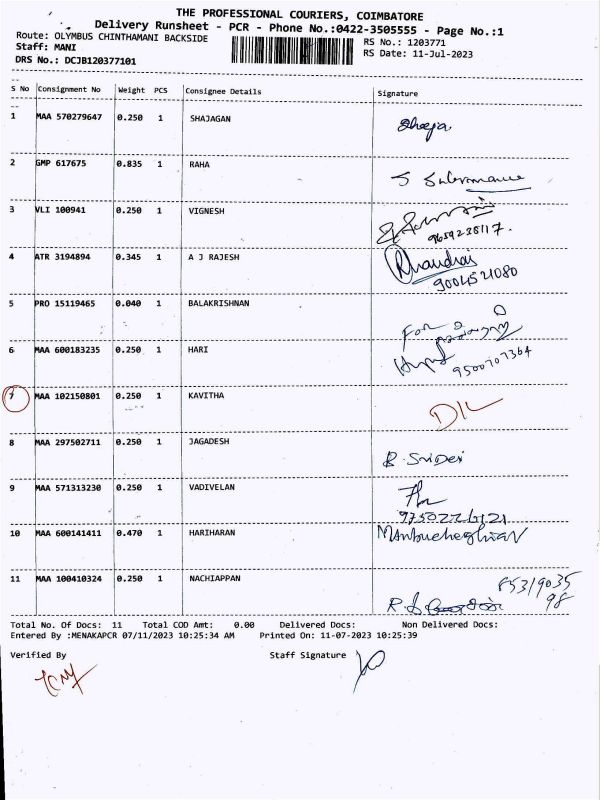 THE PROFESSIONAL COURIERS, COIMBATORE
Delivery Runsheet - PCR - Phone No.:0422-3505555 - Page No.:1
Route: OLYMBUS CHINTHAMANI BACKSIDE
RS No.: 1203771
Staff: MANI
RS Date: 11-Jul-2023
DRS No.: DCJB120377101
S No Consignment No Weight PCS Consignee Details Signature
1 MAA 570279647 0.250 1 SHAJAGAN
2 GMP 617675 0.835 1 RAHA
3 VLI 100941 0.250 1 VIGNESH
4 ATR 3194894 0.345 1 A J RAJESH
9004521080
5 PRO 15119465 0.040 1 BALAKRISHNAN
For
6 MAA 600183235 0.250 1 HARI
9500707364
7 MAA 102150801 0.250 1 KAVITHA
D/L
8 MAA 297502711 0.250 1 JAGADESH
B. SriDevi
9 MAA 571313230 0.250 1 VADIVELAN
10 MAA 600141411 0.470 1 HARIHARAN
11 MAA 100410324 0.250 1 NACHIAPPAN
85319035
98
Total No. Of Docs: 11 Total COD Amt: 0.00 Delivered Docs: Non Delivered Docs:
Entered By :MENAKAPCR 07/11/2023 10:25:34 AM Printed On: 11-07-2023 10:25:39
Verified By Staff Signature